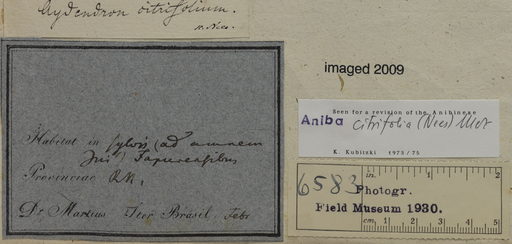 Aydendron citrifolium.
n. Nees.
Habitat in sylvis (ad amnem
Provinciae R. N.
Dr Martius Iter Brasil. Febr.
imaged 2009
Seen for a revision of the Anibineae
Aniba citrifolia (Nees) Mez
K. Kubitzki 1973/75
in. 1 2
6583
Photogr.
Field Museum 1930.
cm. 1 2 3 4 5